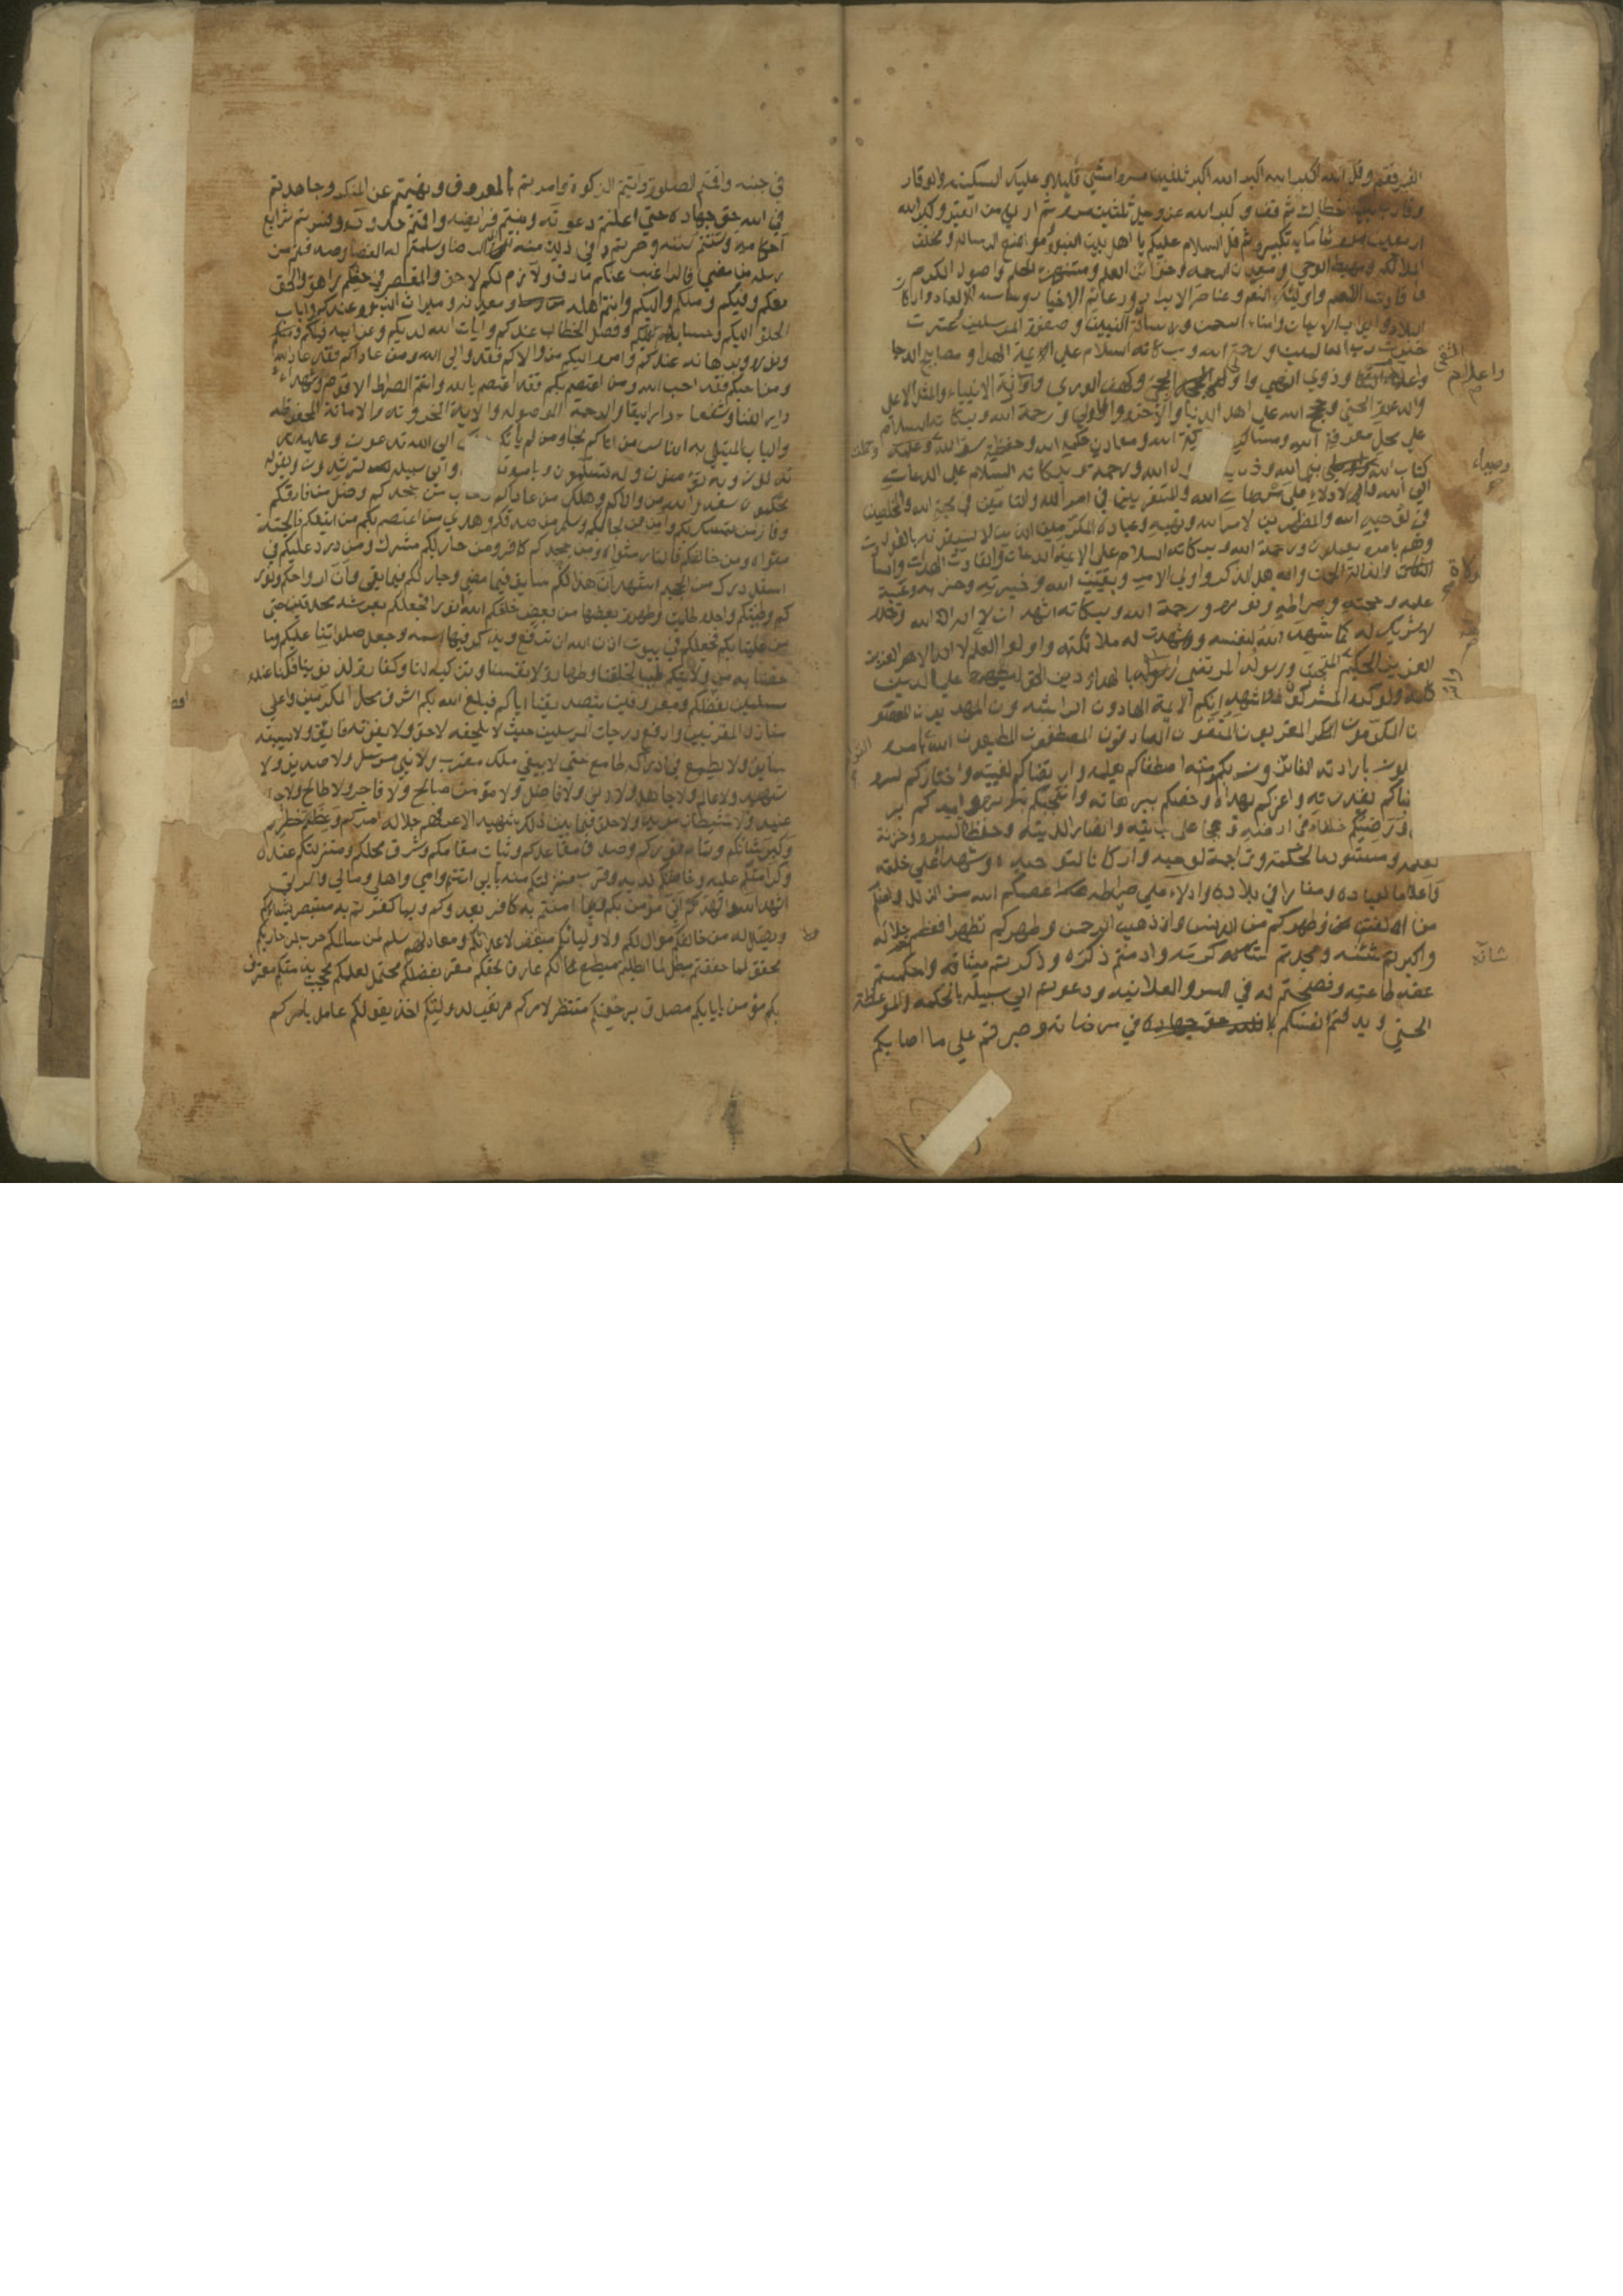 القبر فقف وقل الله اكبر الله اكبر الله اكبر ثلثين مرة وامشي قليلا و عليك السكينة والوقار
وقارب بين خطاك ثم قف و كبر الله عز وجل ثلثين مرة ثم ادن من القبر وكبر الله
اربعين مرة تمام ماية تكبيرة ثم قل السلام عليكم يا اهل بيت النبوة وموضع الرسالة ومختلف
الملائكة ومهبط الوحي ومعدن الرحمة وخزان العلم ومنتهى الحلم واصول الكرم
وقادت الامم واولياء النعم وعناصر الابرار ودعائم الاخيار وساسة العباد واركان
البلاد وابواب الايمان وامناء الرحمن وسلالة النبيين وصفوة المرسلين وعترت
خيرت رب العالمين ورحمة الله وبركاته السلام علي الايمة الهدا ومصابيح الدجا
واعلام التقى
وذوي النهي واولي الحجى وكهف الوري وورثة الانبياء والمثل الاعلي
والدعوة الحسني وحجج الله علي اهل الدنيا والآخرة والاولي ورحمة الله وبركاته السلام
علي محل معرفة الله ومساكن بركة الله ومعادن حكمة الله وحفظة سر الله وحملة
كتاب الله واوصياء نبي الله وذرية رسول الله ورحمة الله وبركاته السلام علي الدعات
الي الله والادلاء علي مرضات الله والمستقرين في امر الله والتامين في محبة الله والمخلصين
في توحيد الله والمظهرين لامر الله ونهيه وعباده المكرمين الذين لا يسبقونه بالقول
وهم بامره يعملون ورحمة الله وبركاته السلام علي الايمة الدعات والقادت الهدات والسادت
الولاة والذادة الحمات واهل الذكر واولي الامر وبقيت الله وخيرته وحزبه وعيبة
علمه وحجته وصراطه ونوره ورحمة الله وبركاته اشهد ان لا اله الا الله وحده
لا شريك له كما شهد الله لنفسه وشهدت له ملائكته واولوا العلم لا اله الا هو العزيز
المنتجب ورسوله المرتضي ارسله بالهدا ودين الحق ليظهره علي الدين
كله ولو كره المشركون واشهد انكم الايمة الهادون الراشدون المهديون المعصومون
المكرمون المقربون المتقون الصادقون المصطفون المطيعون لله القوامون بامره
العاملون بارادته الفائزون بكرامته اصطفاكم بعلمه وارتضاكم لغيبه واختاركم لسره
واجتباكم بقدرته واعزكم بهداه وخصكم ببرهانه وانتجبكم لنوره وايدكم بر
ورضيكم خلفاء في ارضه وحججا علي بريته وانصارا لدينه وحفظة لسره وخزنة
لعلمه ومستودعا لحكمته وتراجمة لوحيه واركانا لتوحيده وشهداء علي خلقه
واعلاما لعباده ومنارا في بلاده وادلاء علي صراطه عصمكم الله من الزلل وامنكم
من الفتن وطهركم من الدنس واذهب الرجس وطهركم تطهيرا فعظمتم جلاله
واكبرتم شانه ومجدتم كرمه وادمتم ذكره وذكرتم ميثاقه واحكمتم
عقد طاعته ونصحتم له في السر والعلانية ودعوتم الي سبيله بالحكمة والموعظة
الحسني وبذلتم انفسكم في مرضاته وصبرتم علي ما اصابكم
في جنبه واقمتم الصلوة واتيتم الزكوة وامرتم بالمعروف ونهيتم عن المنكر وجاهدتم
في الله حق جهاده حتي اعلنتم دعوته وبينتم فرايضه واقمتم حدوده ونشرتم شرايع
احكامه وسننتم سننه وصرتم في ذلك منه الي الرضا وسلمتم له القضا وصدقتم من
رسله من مضي فالراغب عنكم مارق واللازم لكم لاحق والمقصر في حقكم زاهق والحق
معكم وفيكم ومنكم واليكم وانتم اهله ومعدنه وميراث النبوة عندكم واياب
الخلق اليكم وحسابهم عليكم وفصل الخطاب عندكم وآيات الله لديكم وعزايمه فيكم
ونوره وبرهانه عندكم وامره اليكم من والاكم فقد والى الله ومن عاداكم فقد عاد الله
ومن احبكم فقد احب الله ومن اعتصم بكم فقد اعتصم بالله وانتم الصراط الاقوم وشهداء
دار الفنا وشفعاء دار البقا والرحمة الموصولة والآية المخزونة والامانة المحفوظة
والباب المبتلي به الناس من اتاكم نجا ومن لم ياتكم الى الله تدعون وعليه
تدلون وبه تؤمنون وله تسلمون وبامره والي سبيله ترشدون وبقوله
تحكمون سعد والله من والاكم وهلك من عاداكم وخاب من جحدكم وضل من فارقكم
وفاز من تمسك بكم وامن من لجا اليكم وسلم من صدقكم وهدي من اعتصم بكم من اتبعكم فالجنة
مثواه ومن خالفكم فالنار مثواه ومن جحدكم كافر ومن حاربكم مشرك ومن رد عليكم في
اسفل درك من الجحيم اشهد ان هذا لكم سابق فيما مضي وجار لكم فيما بقي وان ارواحكم ونور
كم وطينتكم واحدة طابت وطهرت بعضها من بعض خلقكم الله انوارا فجعلكم بعرشه محدقين حتي
من علينا بكم فجعلكم في بيوت اذن الله ان ترفع ويذكر فيها اسمه وجعل صلواتنا عليكم وما
خصنا به من ولايتكم طيبا لخلقنا وطهارة لانفسنا وتزكية لنا وكفارة لذنوبنا فكنا عنده
مسلمين بفضلكم ومعروفين بتصديقنا اياكم فبلغ الله بكم اشرف محل المكرمين واعلي
منازل المقربين وارفع درجات المرسلين حيث لا يلحقه لاحق ولا يفوقه فايق ولا يسبقه
سابق ولا يطمع في ادراكه طامع حتي لا يبقي ملك مقرب ولا نبي مرسل ولا صديق ولا
شهيد ولا عالم ولا جاهل ولا دني ولا فاضل ولا مؤمن صالح ولا فاجر ولا طالح ولا جبار
عنيد ولا شيطان مريد ولا خلق فيما بين ذلك شهيد الا عرفهم جلالة امركم وعظم خطركم
وكبر شانكم وتمام نوركم وصدق مقاعدكم وثبات مقامكم وشرف محلكم ومنزلتكم عنده
وكرامتكم عليه وخاصتكم لديه وقرب منزلتكم منه بابي انتم وامي واهلي ومالي واسرتي
اشهد الله واشهدكم اني مؤمن بكم وبما امنتم به كافر بعدوكم وبما كفرتم به مستبصر بشانكم
وبضلالة من خالفكم موال لكم ولاوليائكم مبغض لاعدائكم ومعاد لهم سلم لمن سالمكم حرب لمن حاربكم
محقق لما حققتم مبطل لما ابطلتم مطيع لكم عارف بحقكم مقر بفضلكم محتمل لعلمكم محتجب بذمتكم معترف
بكم مؤمن بايابكم مصدق برجعتكم منتظر لامركم مرتقب لدولتكم اخذ بقولكم عامل بامركم